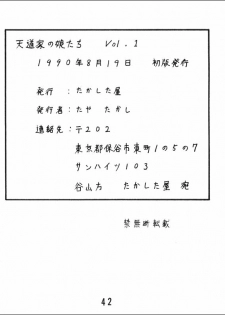 天道家の娘たち Vol.1
1990年8月19日 初版発行
発行:たかした屋
発行者:たや たかし
連絡先:〒202
東京都保谷市東町1の5の7
サンハイツ103
谷山方 たかした屋 宛
禁無断転載
42